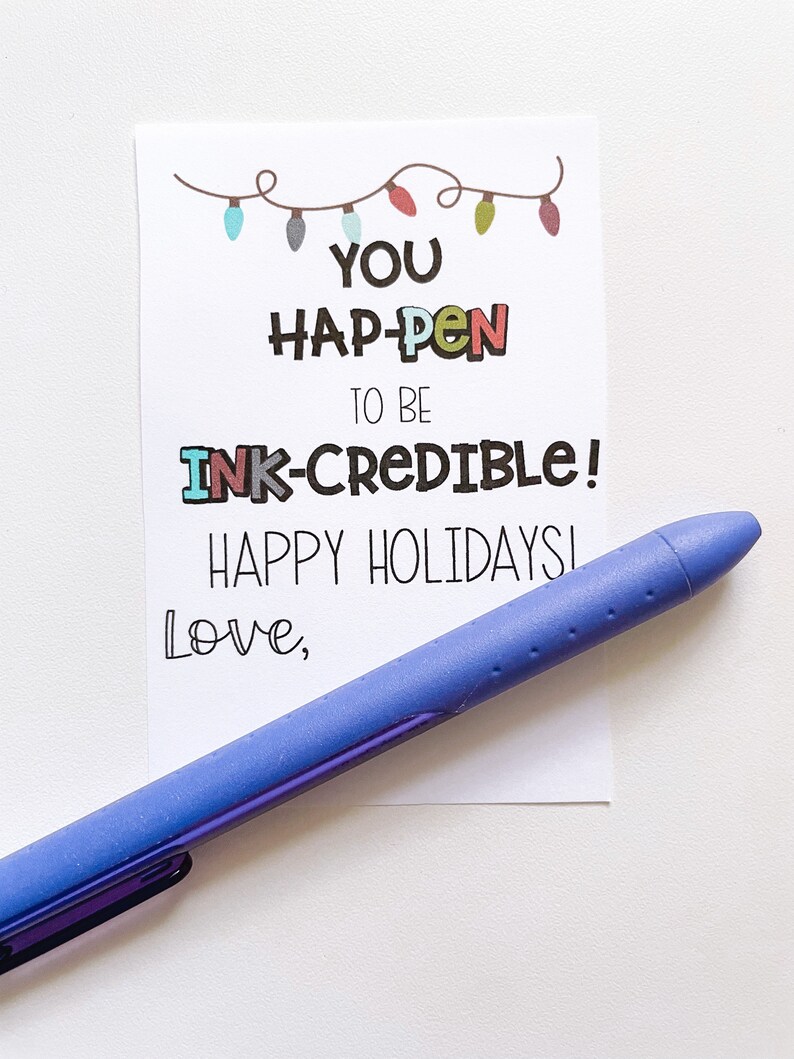 YOU
HAP-PEN
TO BE
INK-CREDIBLE!
HAPPY HOLIDAYS!
Love,